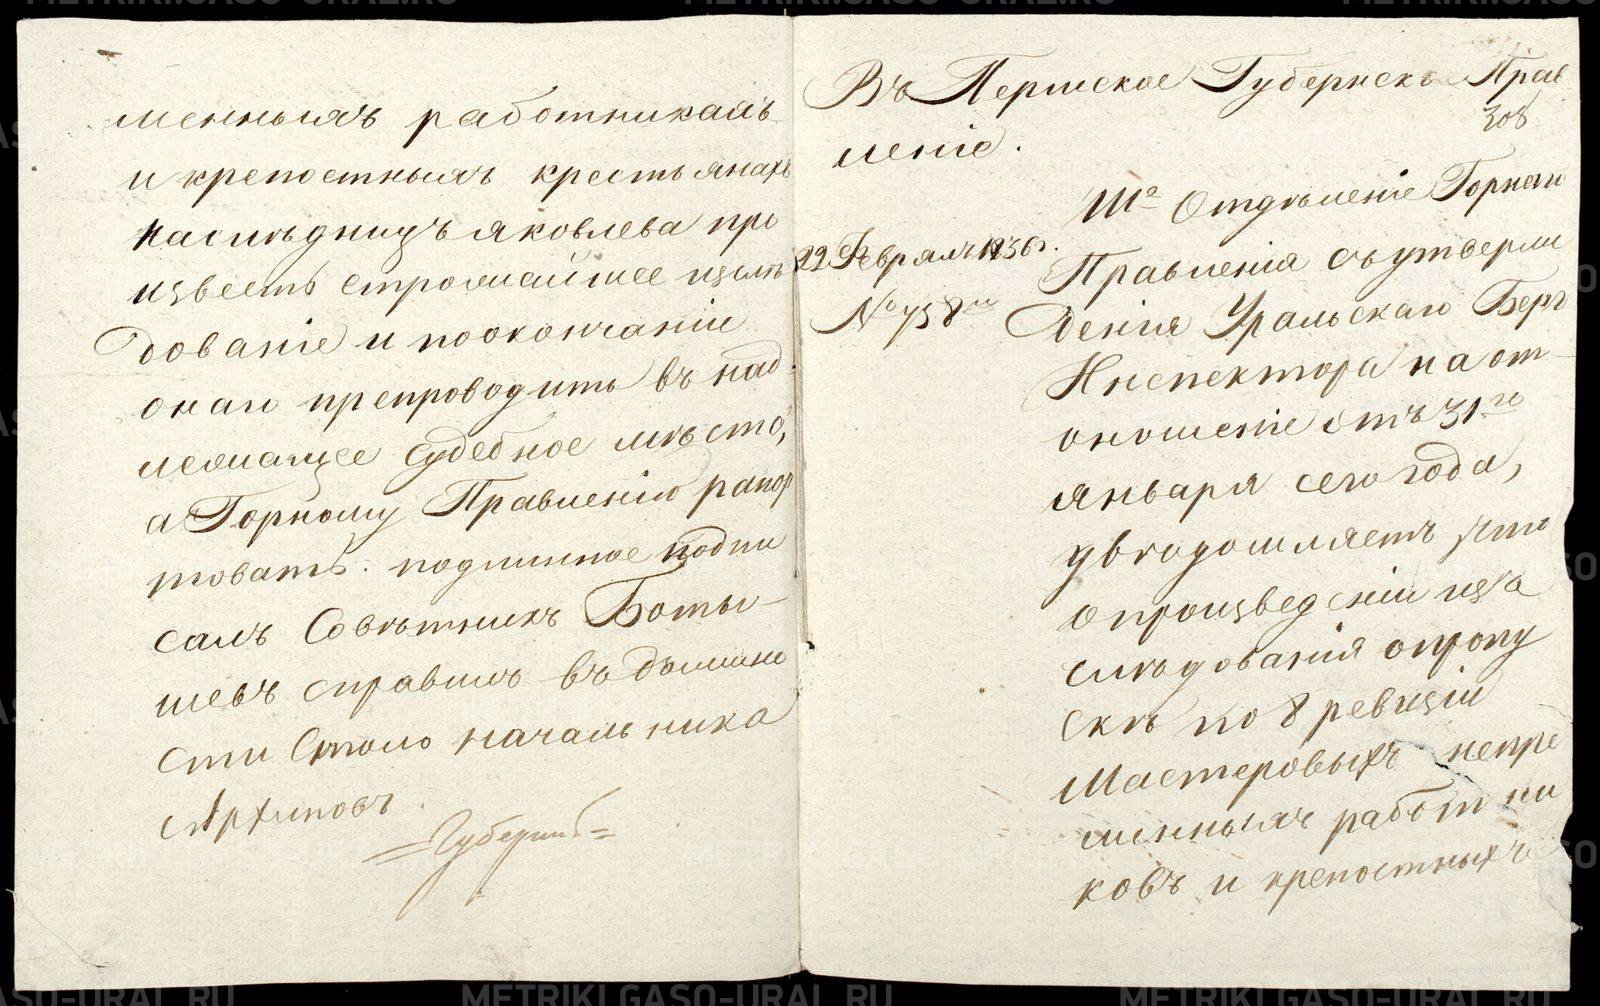 менныхъ работникахъ
и крепостныхъ крестьянахъ
наслѣдницъ яковлева про
известь строжайшее изслѣ
дованіе и поокончаніи
онаго препроводить въ над
лежащее судебное мѣсто,
а Горному Правленію рапор
товать. подлинное подпи
салъ Совѣтникъ Боты-
шевъ справилъ въ должно
сти Столоначальника
Архиповъ.
Въ Пермское Губернское Прав
308
леніе.
22 Февраля 1836 г.
№ 758 ое
III е Отдѣленіе Горнаго
Правленія съ утверж
денія Уральскаго Берг
Инспектора на от
ношеніе отъ 31 го
января сего года,
увѣдомляетъ что
о произведеніи из
слѣдованія опропу
скѣ по 8 ревизіи
Мастеровыхъ непре
менныхъ работни
ковъ и крепостныхъ
METRIKI.GASO-URAL.RU
METRIKI.GASO-URAL.RU